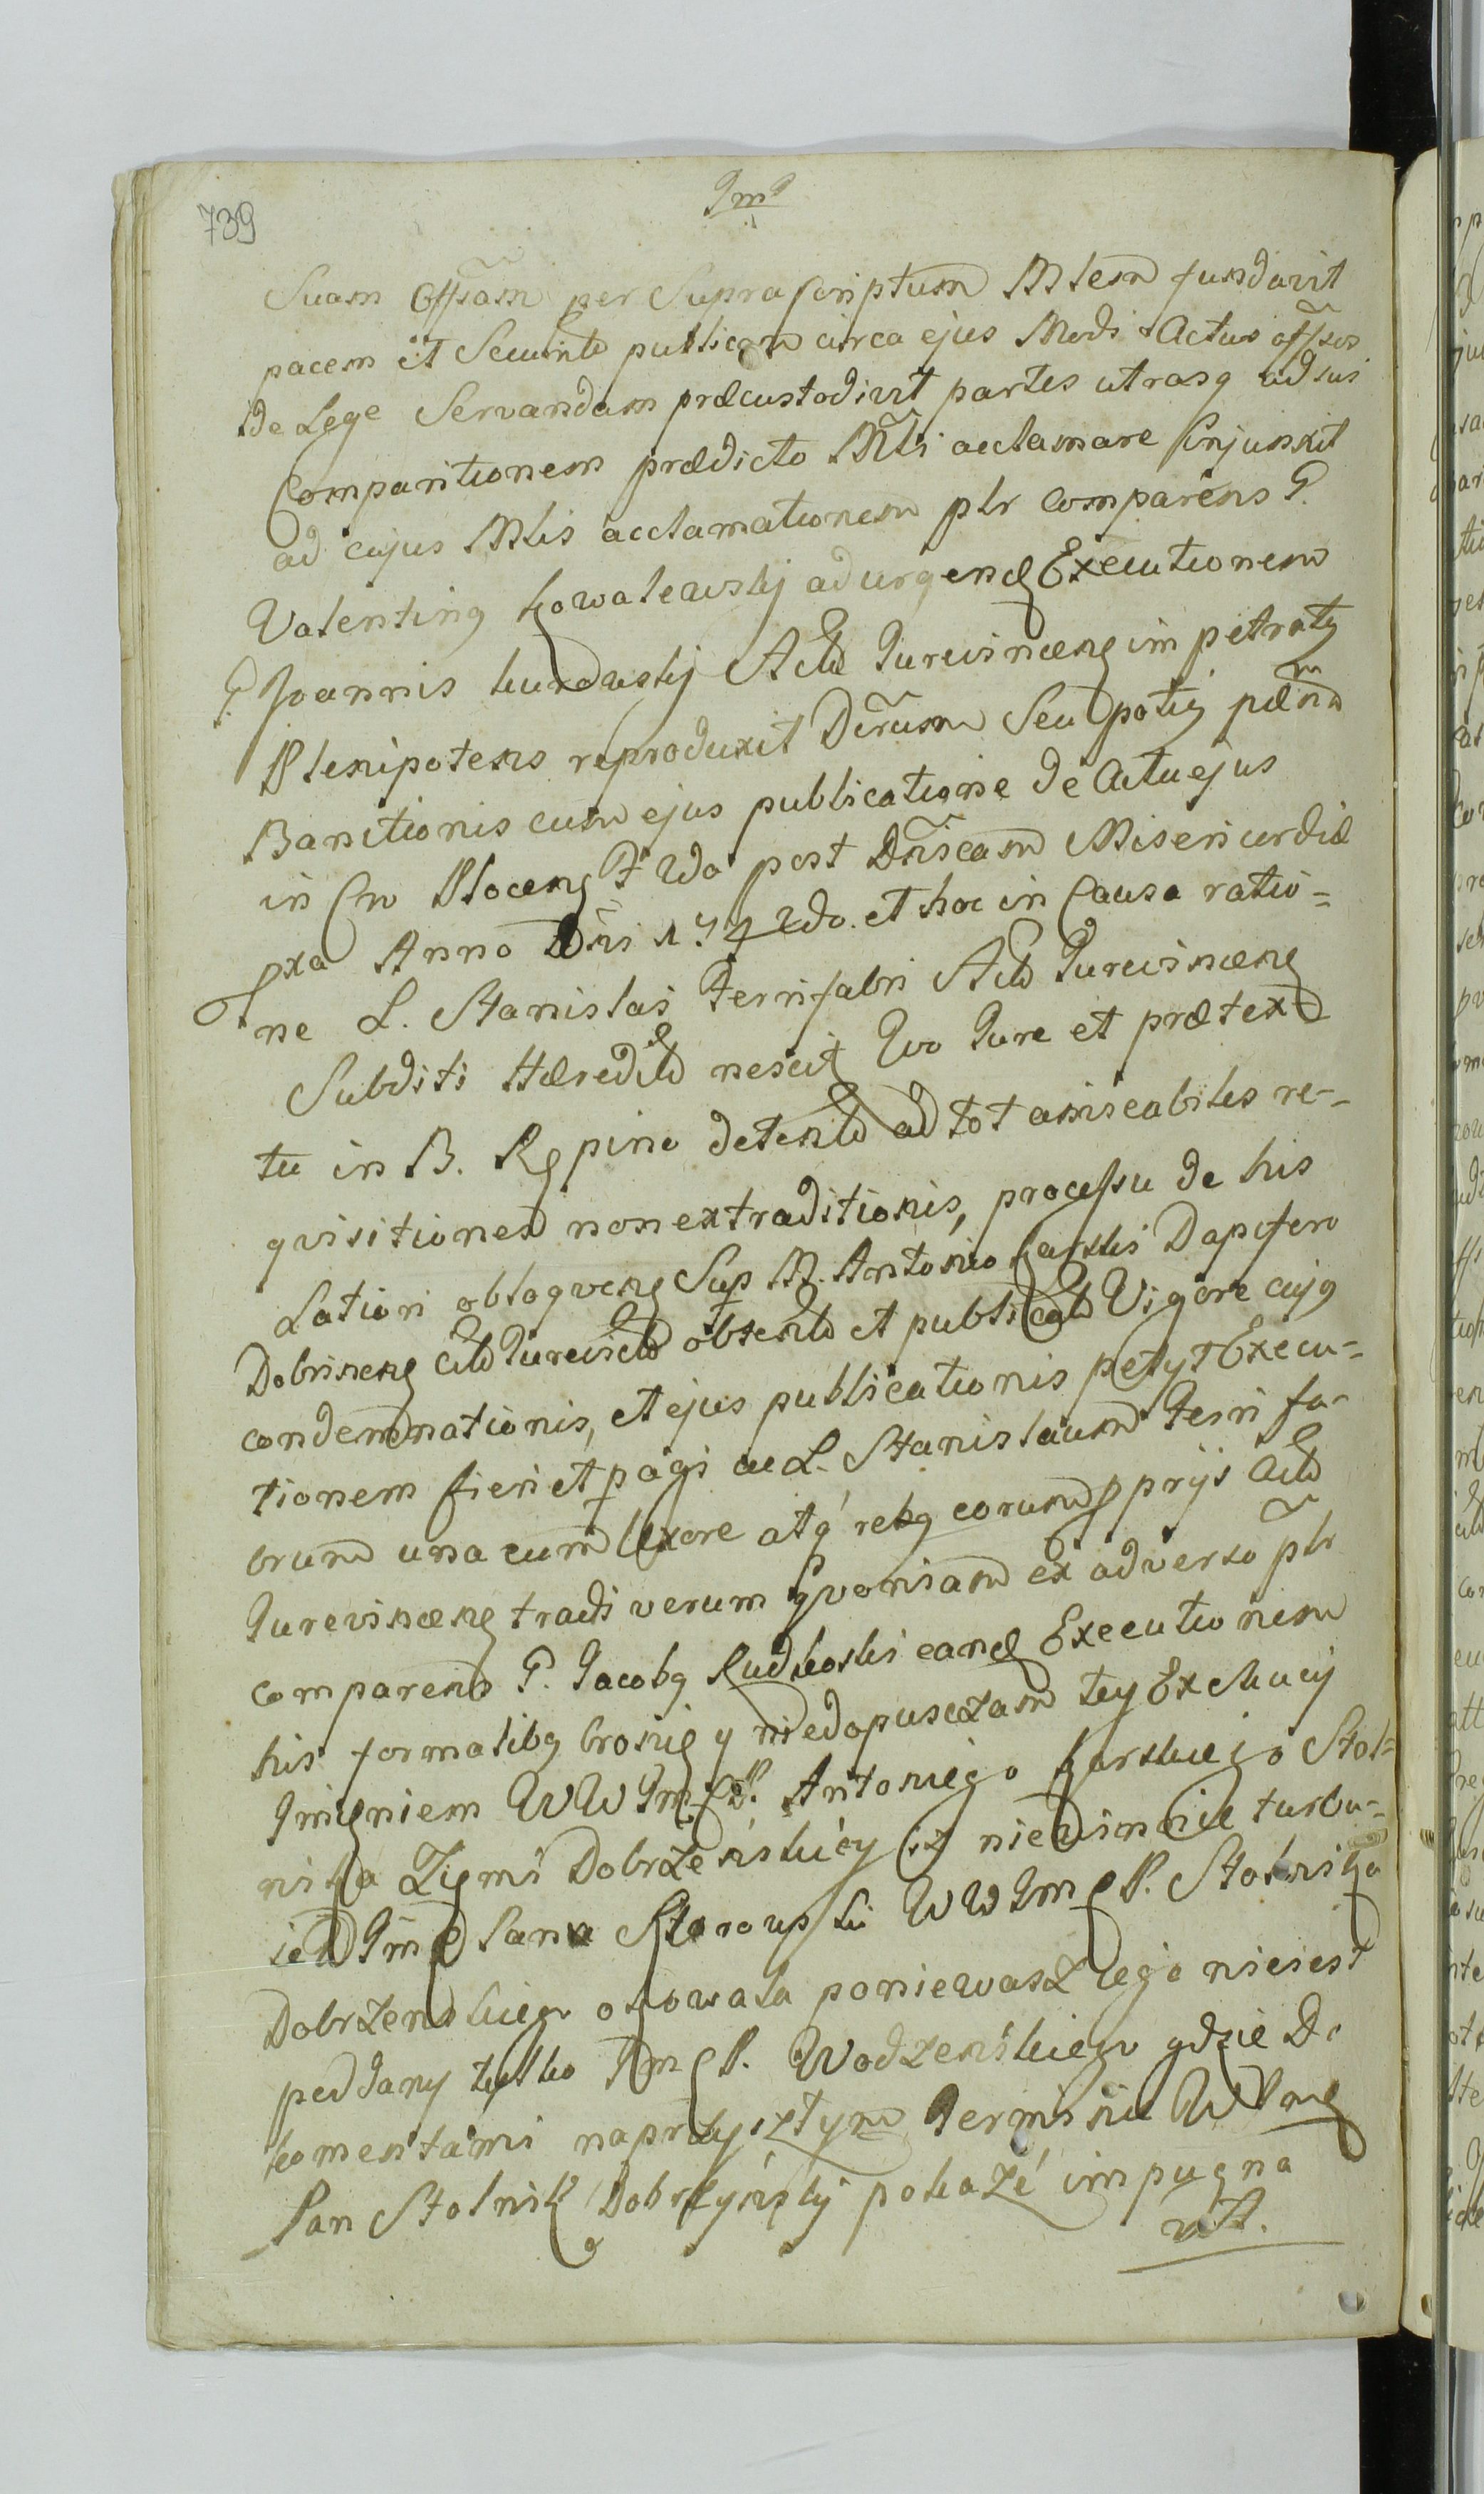 739
Jmo
Suam Offsam per Suprascriptum Mlem fundavit
pacem et Securitd publicam circa ejus Modi Actus offsos
de Lege Servandam præcustodivit partes utrasq ad sui
Comparitionem prædicto Mlti acclamare Injunxit
ad cujus Mlis acclamationem plr comparens G.
Valentinq Kowalewskj ad urgend Executionem
G. Joannis Kurowskj Actd Jurevincens impetratq
Plenipotens reproduxit Decrum Seu potiq pœnm
Banitionis cum ejus publicatione de Actu ejus
in Cro Plocens F 2da post Dnicam Misericordiæ
pxa Anno Dni 1742do. et hoc in Causa ratio=
ne L. Stanislai Ferrifabri Actd Jurevincens
Subditi Hæreditd nescit Quo Jure et prætex
tu in B. Rępino detentd ad tot amicabiles re=
qvisitiones non extraditionis, processu de his
Latiori obloqvens Sup M. Antonio Karski Dapifero
Dobrinens citd Jurevictd obtentd et publicatd Vigore cujq
condemnationis, et ejus publicationis petyt Execu=
tionem fieri et pagi ac L. Stanislaum Ferri fa=
brum una cum Uxore atq rebq eorum pprijs Actd
Jurevincens tradi verum qvoniam ex adverso plr
comparens G. Jacobq Rudkoski eand Executionem
his formalibq bronię y niedopusczam tey Exekucij
Jmięniem WW Jmc P. Antoniego Karskiego Stol=
nika Ziemi Dobrzeńskiey iz niewinnie turbu=
ie Jmc Pana Starowski WW Jmc P. Stolnika
Dobrzenskiego oto wała poniewasz iego nieiest
poddany tylko Jmc P. Wodzeńskiego gdzie Do
komentami naprzyszłym Terminie WJmc
Pan Stolnik Dobrzyńskj pokaże impugna
vit.